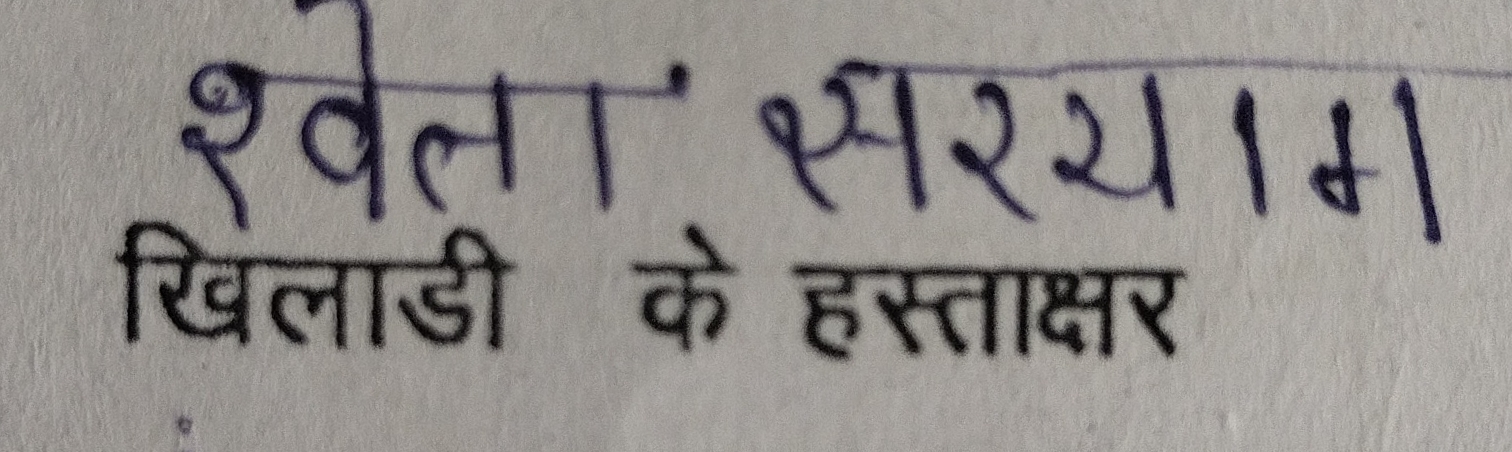 श्वेता सरयाम
खिलाडी के हस्ताक्षर